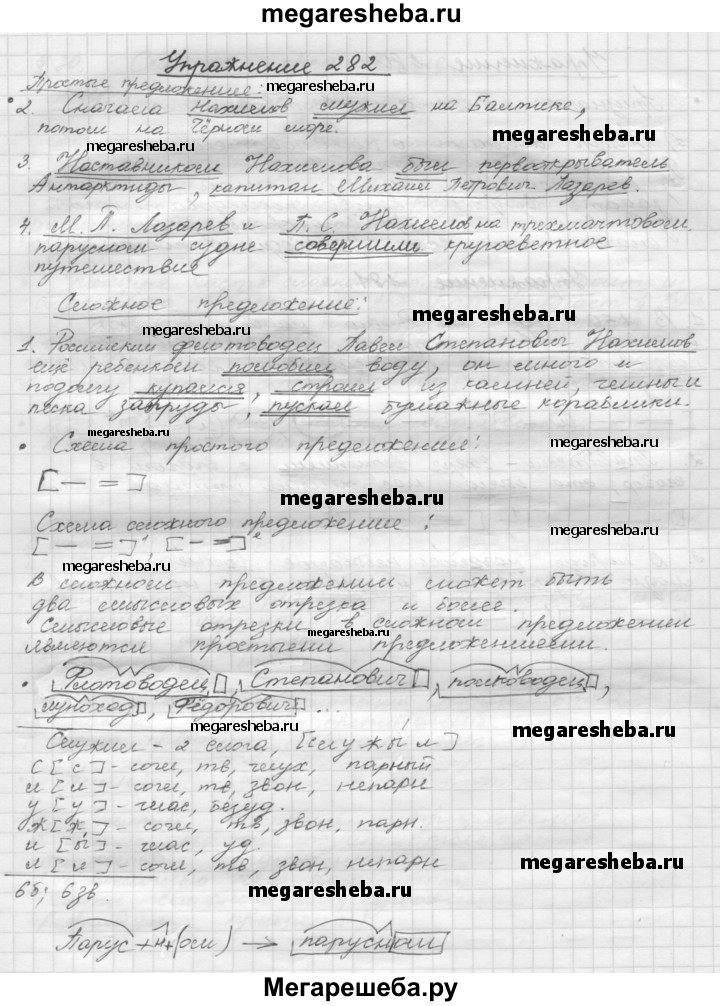 megaresheba.ru
Упражнение 282
Простые предложение: megaresheba.ru
2. Сначала Нахимов служил на Балтике,
megaresheba.ru
потом на Чёрном море.
megaresheba.ru
megaresheba.ru
3. Наставником Нахимова был первооткрыватель
Антарктиды, капитан Михаил Петрович Лазарев.
megaresheba.ru
4. М. П. Лазарев и П. С. Нахимов на трёхмачтовом
парусном судне совершили кругосветное
путешествия
Сложное предложение:
megaresheba.ru
megaresheba.ru
1. Российский флотоводец Павел Степанович Нахимов
ещё ребёнком полюбил воду, он много и
megaresheba.ru
подолгу купался, строил из камней, глины и
песка запруды, пускал бумажные кораблики.
megaresheba.ru
• Схема простого предложение:
[— =]
megaresheba.ru
Схема сложного предложение:
megaresheba.ru
[— =], [— =].
megaresheba.ru
В сложном предложении может быть
два смысловых отрезка и более.
Смысловые отрезки в сложном предложении
megaresheba.ru
являются простыми предложениями.
• Флотоводец, Степанович, полководец,
megaresheba.ru
луноход, Фёдорович ...
megaresheba.ru
Служил - 2 слога, [служыл]
с [с] - согл, тв, глух, парный
megaresheba.ru
л [л] - согл, тв, звон, непарн
у [у] - глас, безуд.
ж [ж] - согл, тв, звон, парн.
megaresheba.ru
и [ы] - глас, уд.
л [л] - согл, тв, звон, непарн
megaresheba.ru
6б; 6зв.
megaresheba.ru
Парус + н + (ом) → парусном
megaresheba.ru
Мегарешеба.ру